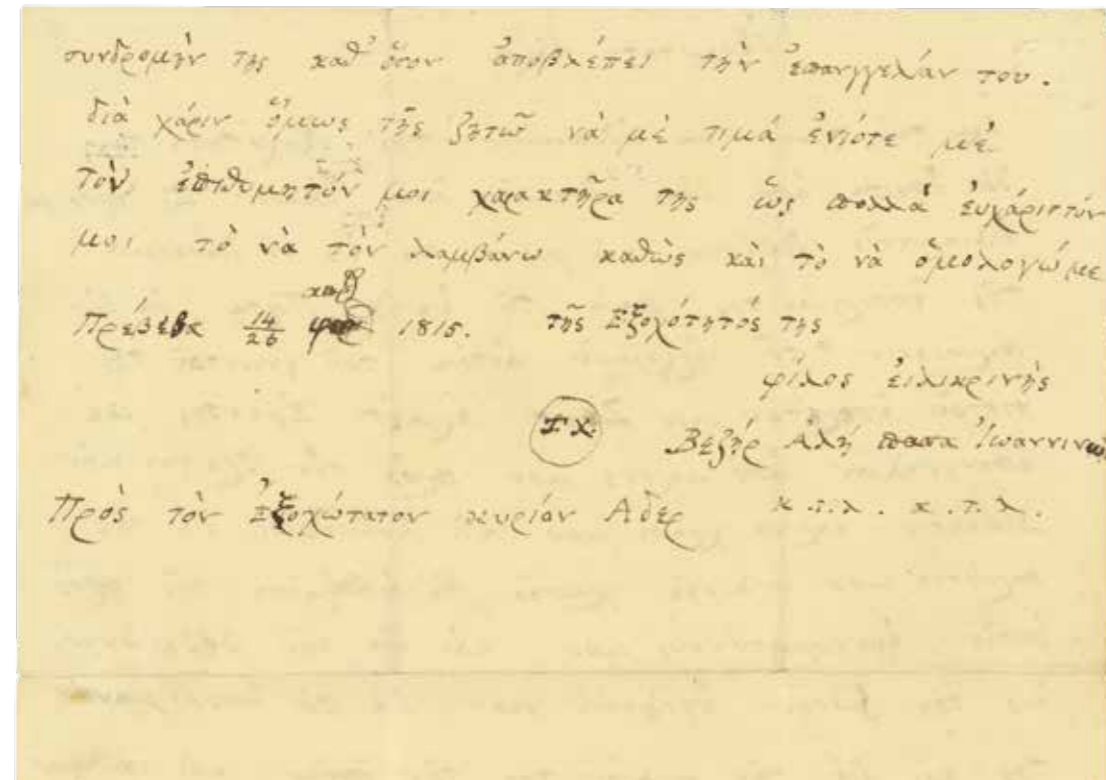 συνδρομήν της καθ' ὅσον ἀποβλέπει τὴν ἐπαγγελάν του.
διὰ χάριν ὅμως τῆς ζητῶ νὰ μὲ τιμᾶ ἐνίοτε μὲ
τὸν ἐπιθυμητόν μοι χαρακτῆρα της ὡς πολλὰ εὐχάριστόν
μοι τὸ νὰ τὸν λαμβάνω καθὼς καὶ τὸ νὰ ὁμολογώμε
Πρέβεβα 14/26 1815. τῆς Ἐξοχότητός της
φίλος εἰλικρινὴς
Τ Χ. Βεζὴρ Ἀλῆ πασα Ἰωαννίνων
Πρὸς τὸν Ἐξοχώτατον κυρίον Ἀδερ κ.τ.λ. κ.τ.λ.